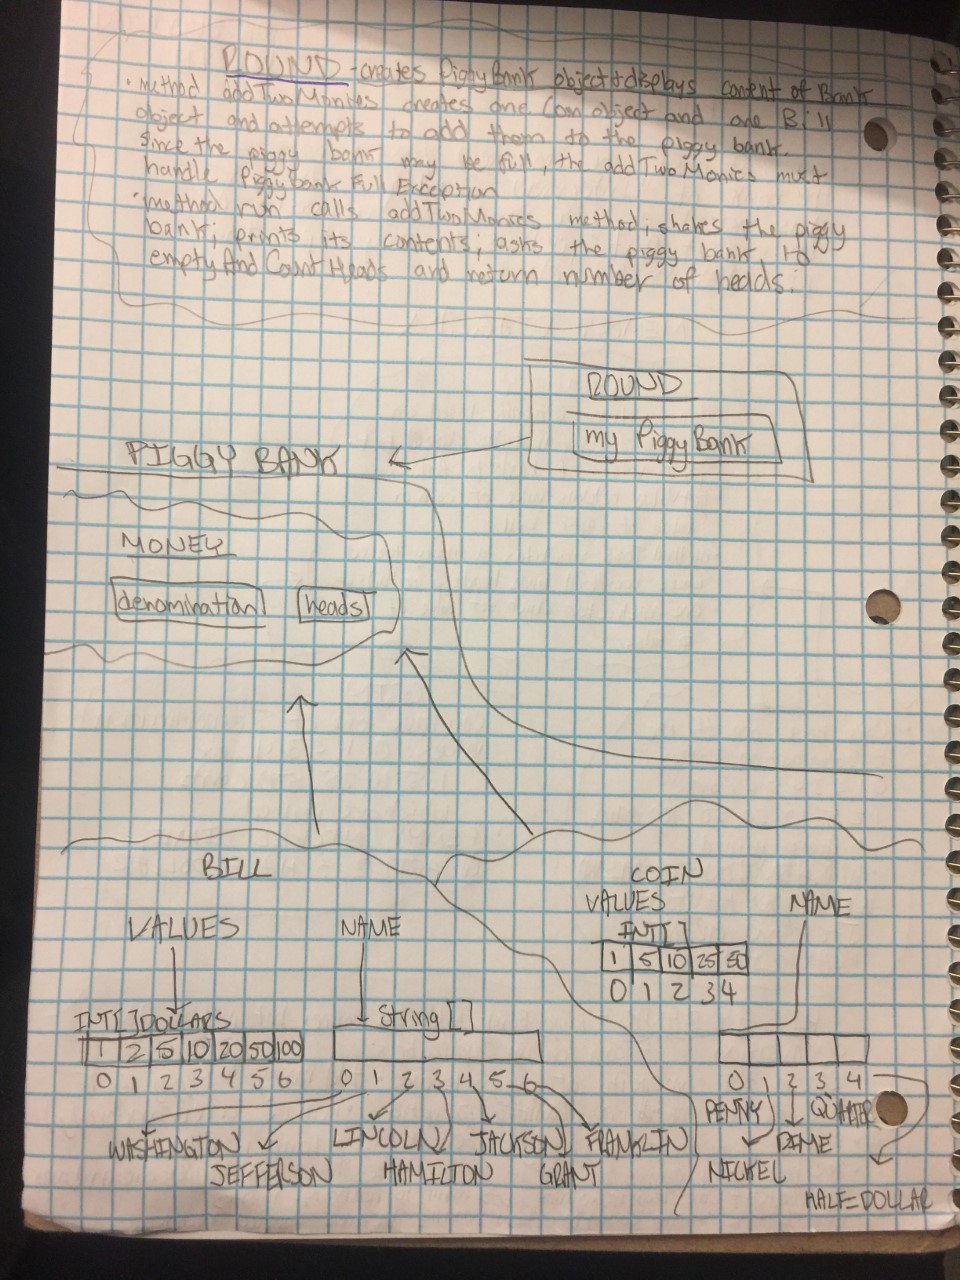 ROUND - creates PiggyBank object + displays content of Bank
• method addTwoMonies creates one Coin object and one Bill
object and attempts to add them to the piggy bank.
Since the piggy bank may be full, the addTwoMonies must
handle PiggyBank Full Exception
• method run calls addTwoMonies method; shakes the piggy
bank; prints its contents; asks the piggy bank to
empty And Count Heads and return number of heads.
ROUND
my PiggyBank
PIGGY BANK
MONEY
denomination heads
BILL
COIN
VALUES NAME
VALUES NAME
INT[]
1 5 10 25 50
0 1 2 3 4
INT[] DOLLARS
String[]
1 2 5 10 20 50 100
0 1 2 3 4 5 6
0 1 2 3 4 5 6
0 1 2 3 4
WASHINGTON
JEFFERSON
LINCOLN
HAMILTON
JACKSON
GRANT
FRANKLIN
PENNY
NICKEL
DIME
QUARTER
HALF=DOLLAR